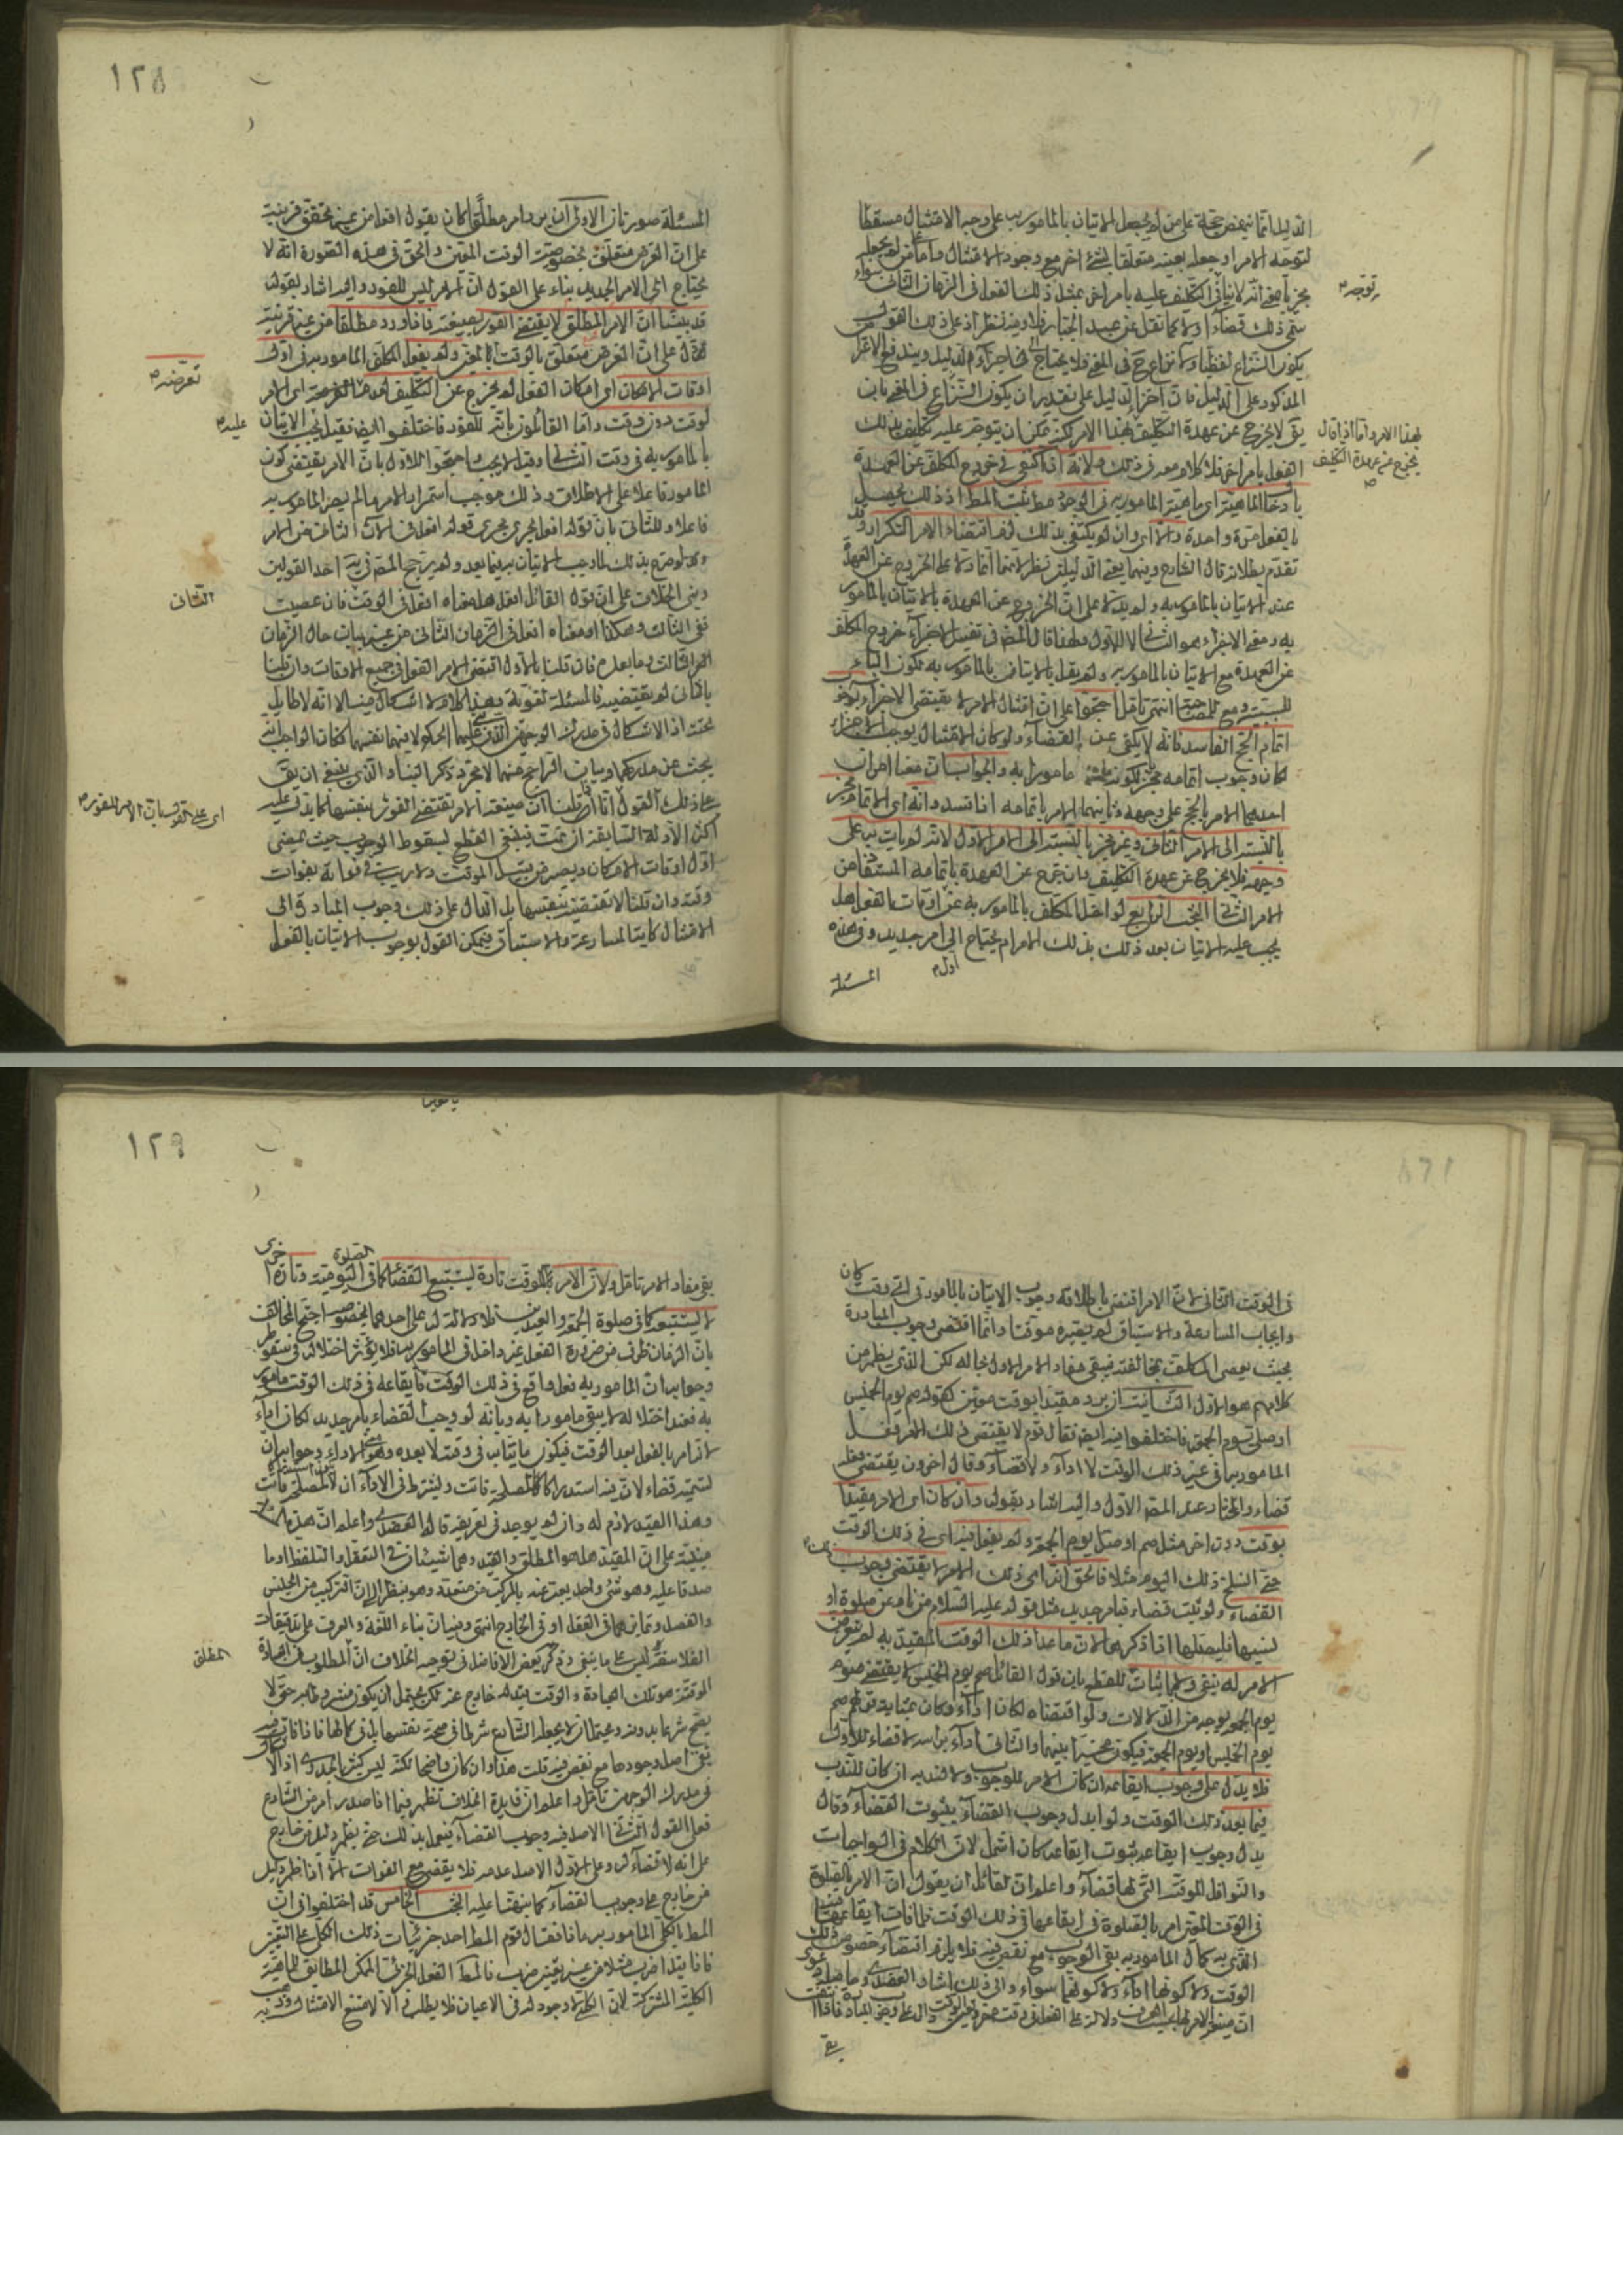 الدليل انما ينهض حجة على من لم يجعل الاتيان بالمامور به على وجه الامتثال مسقطا
لتوجه الامر او جعله بعينه متعلقا بشئ اخر مع وجود الامتثال واما من لم يجعله
مجزيا بمعنى انه لا ينافي التكليف عليه بامر اخر بمثل ذلك الفعل في الزمان الثاني سواء
توجه
سمي ذلك قضاء او لا كما نقل عن عبد الجبار فلا وفيه نظر اذ على ذلك القول
يكون النزاع لفظيا
المذكور على الدليل فان اجزاء الدليل على تقدير ان يكون النزاع في المعنى بان
يق لا يخرج عن عهدة التكليف بهذا الامر لكن يمكن ان يتوجه عليه تكليف بذلك
لهذا الامر واما اذا قال
يخرج عن عهدة التكليف
الفعل بامر اخر فلا كلام معه في ذلك ولانه اذا اكتفى في خروج المكلف عن العهدة
بادخال الماهية اي ماهية المامور به في الوجود مط ثبت المط اذ ذلك يحصل
بالفعل مرة واحدة والا اي وان لم يكتف بذلك لزم اقتضاء الامر التكرار وقد
تقدم بطلانه قال الشارح وفيهما يعني الدليلين نظر لانهما انما دلا على الخروج عن العهدة
عند الاتيان بالمامور به ولم يدلا على ان الخروج عن العهدة بالاتيان بالمامور
به ومعنى الاجزاء هو الثاني لا الاول ولهذا قال المص في تفسير الاجزاء خروج المكلف
عن العهدة مع الاتيان بالمامور به ولم يقل بالاتيان بالمامور به لكون الباء
للسببية ومع للمصاحبة انتهى تامل احتجوا على ان امتثال الامر لا يقتضي الاجزاء بوجوب
اتمام الحج الفاسد فانه لا يكفي عن القضاء ولو كان الامتثال يوجب الاجزاء
لكان وجوب اتمامه مجزيا لكونه مامورا به والجواب ان معنا امران
احدهما الامر بالحج على وجهه وثانيهما الامر باتمامه اذا فسد وانه اي الاتمام مجز
بالنسبة الى الامر الثاني وغير مجز بالنسبة الى الامر الاول لانه لم يات به على
وجهه فلا يخرج عن عهدة التكليف بان يخرج عن العهدة باتمامه المستفاد من
الامر الثاني البحث الرابع لو اخل المكلف بالمامور به عن اوقات الفعل هل
يجب عليه الاتيان بعد ذلك بذلك الامر ام يحتاج الى امر جديد وفي هذه
اول
المسئلة
١٢٨
المسئلة صورتان الاولى ان يرد امر مطلق كان يقول افعل من غير تحقق قرينة
على ان الغرض متعلق بخصوصية الوقت المعين والحق في هذه الصورة انه لا
يحتاج الى الامر الجديد بناء على القول ان الامر ليس للفور واليه اشار بقوله
قد بينا ان الامر المطلق لا يقتضي الفور بصيغته فاذا ورد مطلقا من غير قرينة
تدل على ان الغرض متعلق بالوقت المعين ولم يفعل المكلف المامور به في اول
تعرضه
اوقات الامكان اي امكان الفعل لم يخرج عن التكليف
لوقت دون وقت واما القائلون بانه للفور فاختلفوا ايض فقيل يجب الاتيان
عليه
بالمامور به في وقت الثاني وقيل لا يجب واحتجوا للاول بان الامر يقتضي كون
المامور فاعلا على الاطلاق وذلك موجب استمرار الامر ما لم يصر المامور به
فاعلا وللثاني بان قوله افعل يجري مجرى قوله افعل في الان الثاني من الامر
ولو صرح بذلك لما وجب الاتيان به فيما بعد ولم يرجح المص في يه احد القولين
وبنى الخلاف على ان قول القائل افعل هل معناه افعل في الوقت فان عصيت
الثاني
ففي الثالث وهكذا او معناه افعل في الزمان الثاني من غير بيان حال الزمان
الثالث وما بعده فان قلنا بالاول اقتضى الامر الفعل في جميع الاوقات وان قلنا
بالثاني لم يقتضه فالمسئلة لغوية وهذا الكلام لا اشكال فيه الا انه لا طائل
تحته اذ الاشكال في مدرك الوجهين الذين بني عليهما الحكم لا فيهما نفسهما فكان الواجب ان
يبحث عن مدركهما وبيان الراجح منهما لا مجرد ذكر البناء والذي ينبغي ان يق
على ذلك القول انا ان قلنا ان صيغة الامر تقتضي الفور بنفسها كما يدل عليه
اكثر الادلة السابقة ان تمت فينبغي القطع بسقوط الوجوب حيث يمضي
اول اوقات الامكان ويصير من قبيل الموقت ولا ريب في فواته بفوات
وقته وان قلنا لا تقتضيه بنفسها بل الدال على ذلك وجوب المبادرة الى
الامتثال كايتا المسارعة والاستباق فيمكن القول بوجوب الاتيان بالفعل
في الوقت الثاني لان الامر اقتضى باطلاقه وجوب الاتيان بالمامور في اي وقت كان
وايجاب المسارعة والاستباق لم يصيره موقتا وانما اقتضى وجوب المبادرة
بحيث يعصي المكلف بمخالفته فيبقى مفاد الامر الاول بحاله لكن الذي يظهر من
كلامهم هو الاول الثانية ان يرد مقيدا بوقت معين كقوله صم يوم الخميس
او صل يوم الجمعة فاختلفوا فيه ايض فقال قوم لا يقتضي ذلك الامر فعل
المامور به في غير ذلك الوقت لا اداء ولا قضاء وقال اخرون يقتضي فعله
قضاء والمختار عند المص الاول واليه اشار بقوله وان كان اي الامر مقيدا
بوقت دون اخر مثل صم او صل يوم الجمعة ولم يفعل فيه اي في ذلك الوقت
حتى انسلخ ذلك اليوم مثلا فالحق انه اي ذلك الامر لا يقتضي وجوب
القضاء ولو ثبت قضاء فبامر جديد مثل قوله عليه السلام من نام عن صلوة او
نسيها فليصلها اذا ذكرها لان ما عدا ذلك الوقت المقيد به لم يتعرض
الامر له بنفي ولا باثبات للقطع بان قول القائل صم يوم الخميس لا يقتضي صوم
يوم الجمعة بوجه من الدلالات ولو اقتضاه لكان اداء وكان بمثابة قولهم صم
يوم الخميس او يوم الجمعة فيكون مخيرا بينهما والثاني اداء براسه لا قضاء للاول
فلا يدل على وجوب ايقاعه ان كان الامر للوجوب ولا ندبيه ان كان للندب
فيما بعد ذلك الوقت ولو ابدل وجوب القضاء بثبوت القضاء وقال
بدل وجوب ايقاعه ثبوت ايقاعه كان اشمل لان الكلام في الواجبات
والنوافل الموقتة التي لها قضاء واعلم ان لقائل ان يقول ان الامر بالصلوة
في الوقت المعين امر بالصلوة وفي ايقاعها في ذلك الوقت فاذا فات ايقاعها
الذي به كمال المامور به بقي الوجوب مع نقص فيه فلا يلزم اقتضاء خصوص ذلك
الوقت ولا كونها اداء ولا كونهما سواء والى ذلك اشار العضدي
يق
١٢٩
بقي مفاد الامر تامل ولان الامر بالموقت تارة يستتبع القضاء كما في الصلوة اليومية وتارة اخرى
لا يستتبعه كما في صلوة الجمعة والعيدين فلا دلالة له على احدهما بخصوصه احتج المخالف
بان الزمان ظرف من ضرورة الفعل غير داخل في المامور به فلا يؤثر اختلاله في سقوطه
وجوابه ان المامور به فعل واقع في ذلك الوقت فايقاعه في ذلك الوقت مامور
به فعند اختلاله لا يبقى مامورا به وبانه لو وجب القضاء بامر جديد لكان اداء
لانه امر بالفعل بعد الوقت فيكون ماتيا به في وقته لا بعده وهو معنى الاداء وجوابه ان
تسميته قضاء لان فيه استدراكا لمصلحة فاتت ويشترط في الاداء ان لا
وهذا القيد لازم له وان لم يوجد في تعريفه قال العضدي واعلم ان هذه
مبنية على ان المقيد هل هو المطلق والقيد وهما شيئان في التعقل والتلفظ او ما
صدقا عليه وهو شئ واحد يعبر عنه بالمركب من متعدد وهو ينظر الى ان التركيب من الجنس
والفصل وتمايزهما في العقل او في الخارج انتهى وفيه ان بناء اللغة والعرف على تدقيقات
الفلاسفة ليس على ما ينبغي وذكر بعض الافاضل في توجيه الخلاف ان المطلوب في العبادة
المطلق
الموقتة هو تلك العبادة والوقت قيد له خارج عنه لكن يحتمل ان يكون
يصح شرعا بدونه ويحتمل ان لا يجعله الشارع شرطا في صحة نفسها بل في كمالها فاذا فات
بقي اصل وجودها مع نقص فيه قلت هذا وان كان واضحا لكنه ليس كثير الجدوى اذ
في مدرك الوجهين تامل واعلم ان فايدة الخلاف تظهر فيما اذا صدر امر من الشارع
فعلى القول الثاني الاصل فيه وجوب القضاء فيعمل بذلك حتى يظهر دليل من خارج
على انه لا قضاء له وعلى الاول الاصل عدمه فلا يقضى مع الفوات الا اذا ظهر دليل
من خارج على وجوب القضاء كما نبهنا عليه البحث الخامس قد اختلفوا في ان
المط بالكلي المامور به ماذا فقال قوم المط احد جزئيات ذلك الكلي
فاذا قيل اضرب مثلا من غير تعيين ضرب فالمط الفعل الجزئي الممكن المطابق للماهية
الكلية المشتركة لان الكلي لا وجود له في الاعيان فلا يطلب والا لامتنع الامتثال